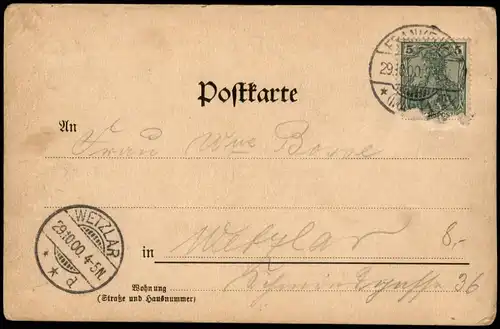 5 5
29.10.00.
Postkarte
An
Frau Wwe
WETZLAR
29.10.00. 4-5N.
* * d
in Wetzlar 8,-
Wohnung
(Straße und Hausnummer)
36